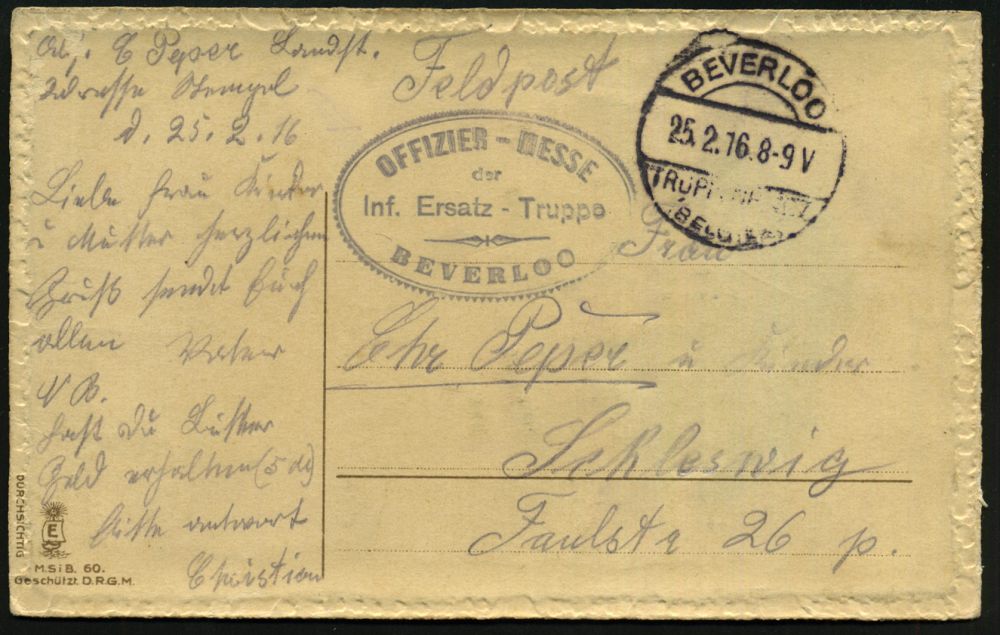 Abs. C Peper Landst.
Adresse Stempel
d. 25. 2. 16
Liebe Frau Kinder
u Mutter herzlichen
Gruß sendet Euch
allen Vater
NB.
hast du Butter
Geld erhalten (5 M)
Bitte antwort
Christian
Feldpost
OFFIZIER - MESSE
der
Inf. Ersatz - Truppe
BEVERLOO
BEVERLOO
25.2.16.8-9V
(BELGIEN)
Frau
Chr Peper u Kinder
Schleswig
Faulstr 26 p.
DURCHSICHTIG
E
M.SiB. 60.
Geschützt. D.R.G.M.